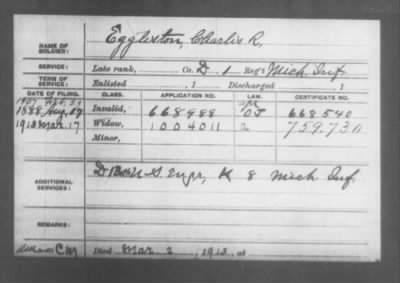 NAME OF SOLDIER: Eggleston, Charles R.
SERVICE: Late rank, Co. D. 1 Reg't Mich. Inf
TERM OF SERVICE: Enlisted , 1 Discharged , 1
DATE OF FILING. CLASS. APPLICATION NO. LAW. CERTIFICATE NO.
1907
1888 Aug. 17 Invalid, 668988 668540
1913 Mar. 17 Widow, 1004011 759.730
Minor,
ADDITIONAL SERVICES: D U.S. Engr, K 8 Mich Inf.
REMARKS:
Died Mar. 2, 1913, at